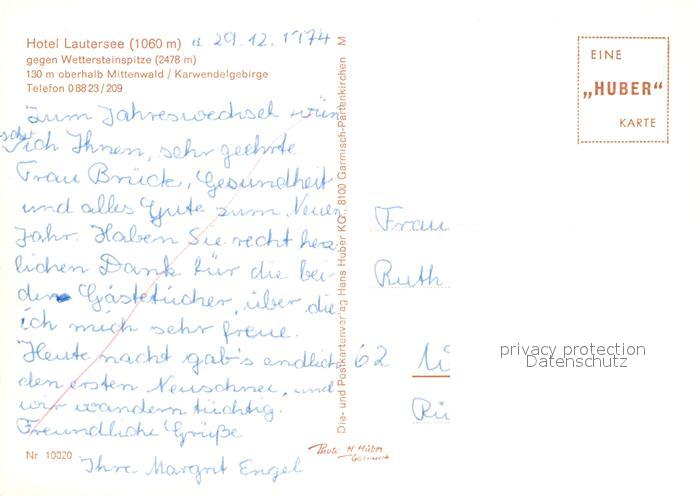 Hotel Lautersee (1060 m) 29.12.1974
gegen Wettersteinspitze (2478 m)
130 m oberhalb Mittenwald / Karwendelgebirge
Telefon 0 88 23 / 209
Zum Jahreswechsel wün
sche ich Ihnen, sehr geehrte
Frau Brück, Gesundheit
und alles Gute zum Neuen
Jahr. Haben Sie recht herz
lichen Dank für die bei-
den Gästetücher, über die
ich mich sehr freue.
Heute nacht gab's endlich
den ersten Neuschnee, und
wir wandern tüchtig.
Freundliche Grüße
Ihre Margrit Engel
Nr 10020
Dia- und Postkartenverlag Hans Huber KG., 8100 Garmisch-Partenkirchen M
Photo H Huber
Garmisch
EINE
„HUBER“
KARTE
Frau
Ruth
62 Wi
Rü
privacy protection
Datenschutz